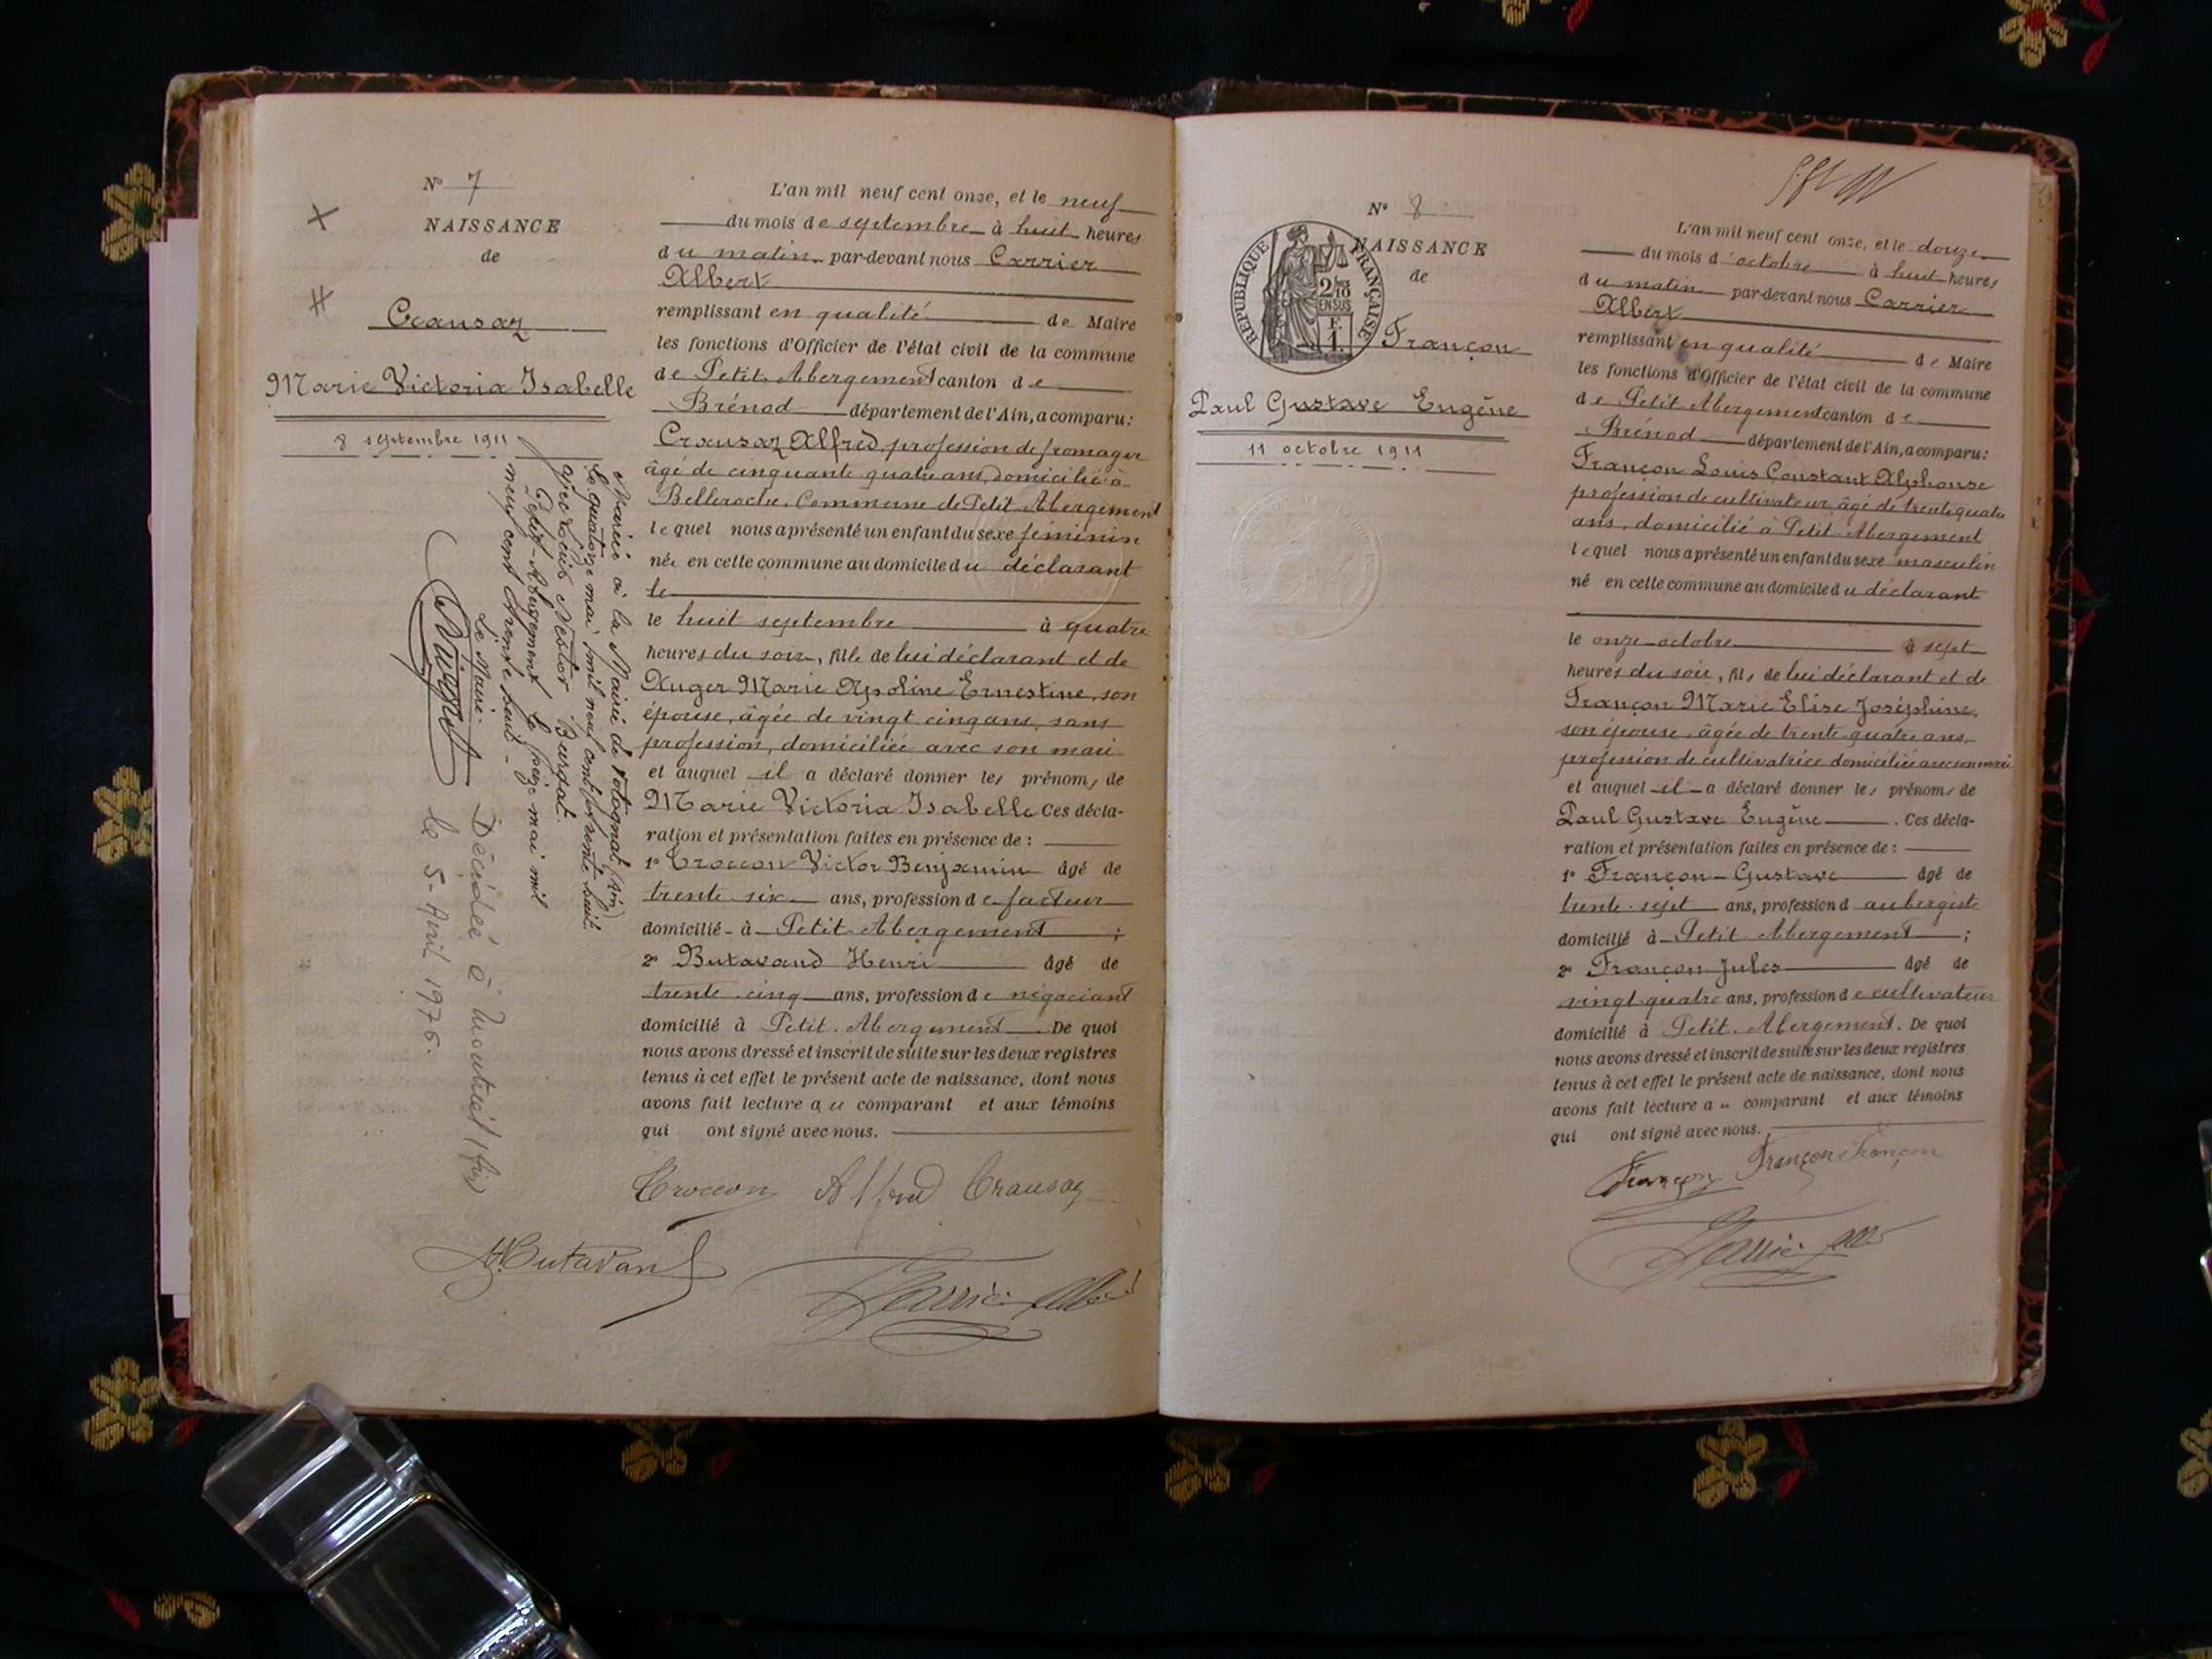 N° 7
NAISSANCE
de
Crausaz
Marie Victoria Isabelle
8 septembre 1911
Mariée à la Mairie de Votognat (Ain)
le quatorze mai mil neuf cent trente huit
avec Louis Nestor Burdat.
Petit-Abergement le seize mai mil
neuf cent trente huit -
Le Maire.
Décédée à Montréal (Ain)
le 5 Avril 1976.
L'an mil neuf cent onze, et le neuf
du mois de septembre à huit heures
du matin par-devant nous Carrier
Albert
remplissant en qualité de Maire
les fonctions d'Officier de l'état civil de la commune
de Petit Abergement canton de
Brénod département de l'Ain, a comparu :
Crausaz Alfred, profession de fromager
âgé de cinquante quatre ans, domicilié à
Belleroche, Commune de Petit Abergement
lequel nous a présenté un enfant du sexe féminin
née en cette commune au domicile du déclarant
le
le huit septembre à quatre
heures du soir, fille de lui déclarant et de
Auger Marie Apoline Ernestine, son
épouse, âgée de vingt cinq ans, sans
profession, domiciliée avec son mari
et auquel il a déclaré donner les prénoms de
Marie Victoria Isabelle Ces décla-
ration et présentation faites en présence de :
1° Croccon Victor Benjamin âgé de
trente six ans, profession de facteur
domicilié à Petit Abergement ;
2° Butavand Henri âgé de
trente cinq ans, profession de négociant
domicilié à Petit Abergement. De quoi
nous avons dressé et inscrit de suite sur les deux registres
tenus à cet effet le présent acte de naissance, dont nous
avons fait lecture au comparant et aux témoins
qui ont signé avec nous.
Croccon Alfred Crausaz
H. Butavand
N° 8
NAISSANCE
de
REPUBLIQUE FRANÇAISE
2/10
EN SUS
F.
1.
Françon
Paul Gustave Eugène
11 octobre 1911
L'an mil neuf cent onze, et le douze
du mois d'octobre à huit heures
du matin par-devant nous Carrier
Albert
remplissant en qualité de Maire
les fonctions d'Officier de l'état civil de la commune
de Petit Abergement canton de
Brénod département de l'Ain, a comparu :
Françon Louis Constant Alphonse
profession de cultivateur, âgé de trente quatre
ans, domicilié à Petit Abergement
lequel nous a présenté un enfant du sexe masculin
né en cette commune au domicile du déclarant
le onze octobre à sept
heures du soir, fils de lui déclarant et de
Françon Marie Elise Joséphine,
son épouse, âgée de trente quatre ans,
profession de cultivatrice domiciliée avec son mari
et auquel il a déclaré donner les prénoms de
Paul Gustave Eugène. Ces décla-
ration et présentation faites en présence de :
1° Françon Gustave âgé de
trente sept ans, profession d aubergiste
domicilié à Petit Abergement ;
2° Françon Jules âgé de
vingt quatre ans, profession de cultivateur
domicilié à Petit Abergement. De quoi
nous avons dressé et inscrit de suite sur les deux registres
tenus à cet effet le présent acte de naissance, dont nous
avons fait lecture au comparant et aux témoins
qui ont signé avec nous.
Françon Françon Françon